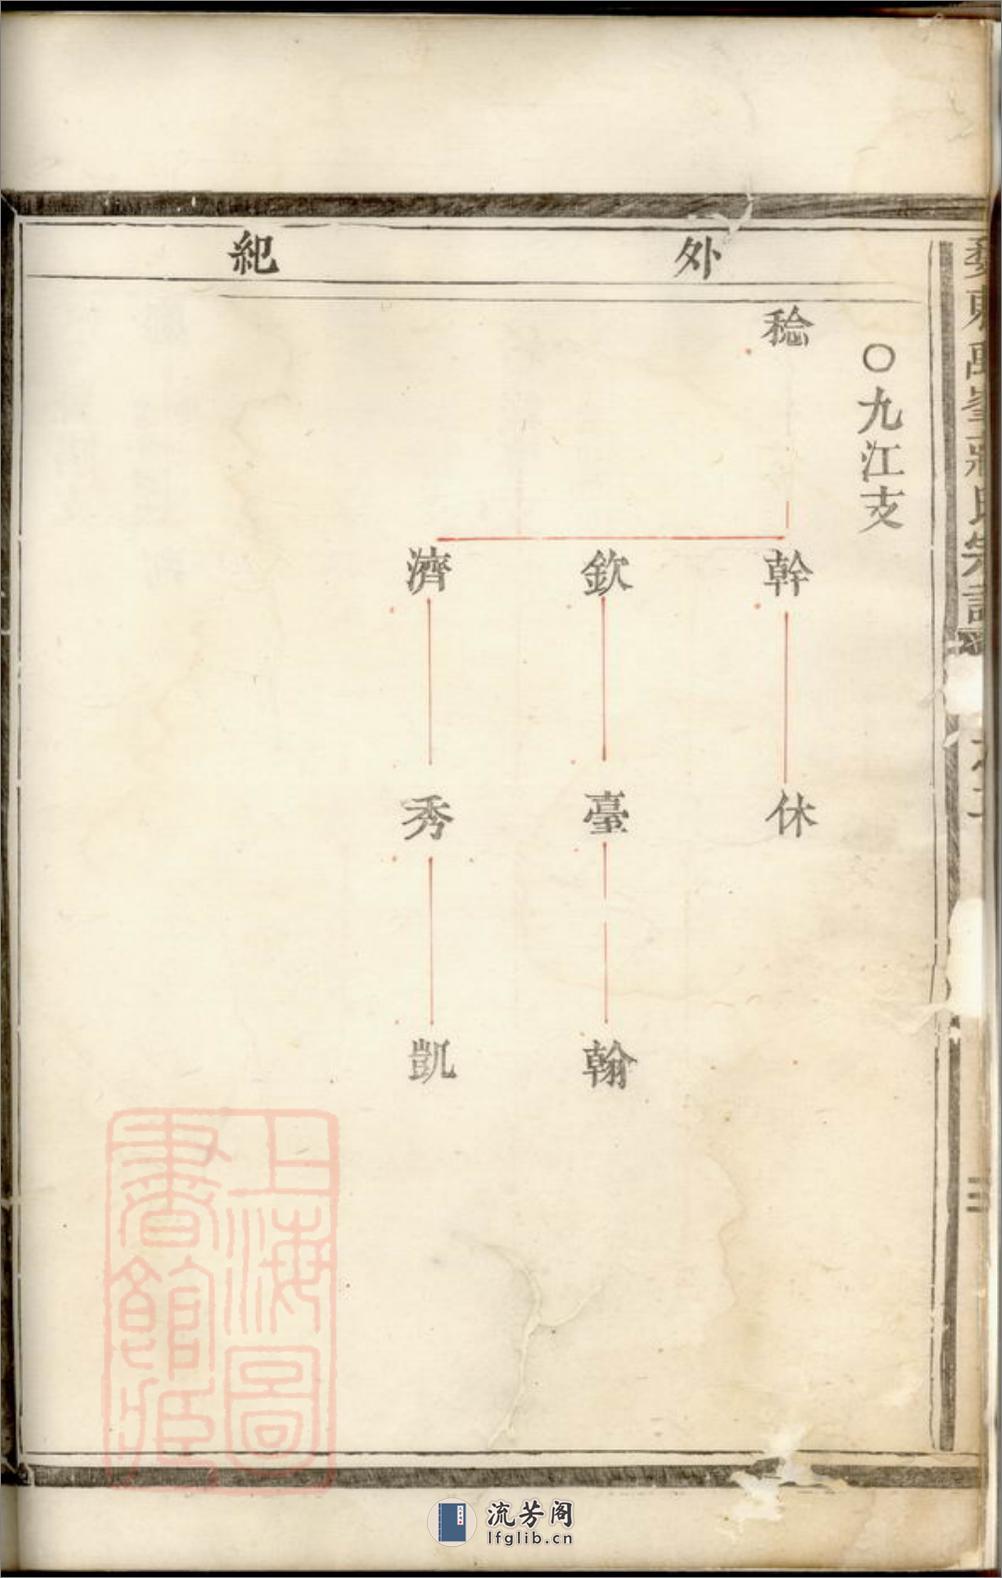 外紀
○九江支
稔
幹 欽 濟
休 臺 秀
翰 凱
蔣氏宗譜
上海圖書館藏
流芳阁
lfglib.cn